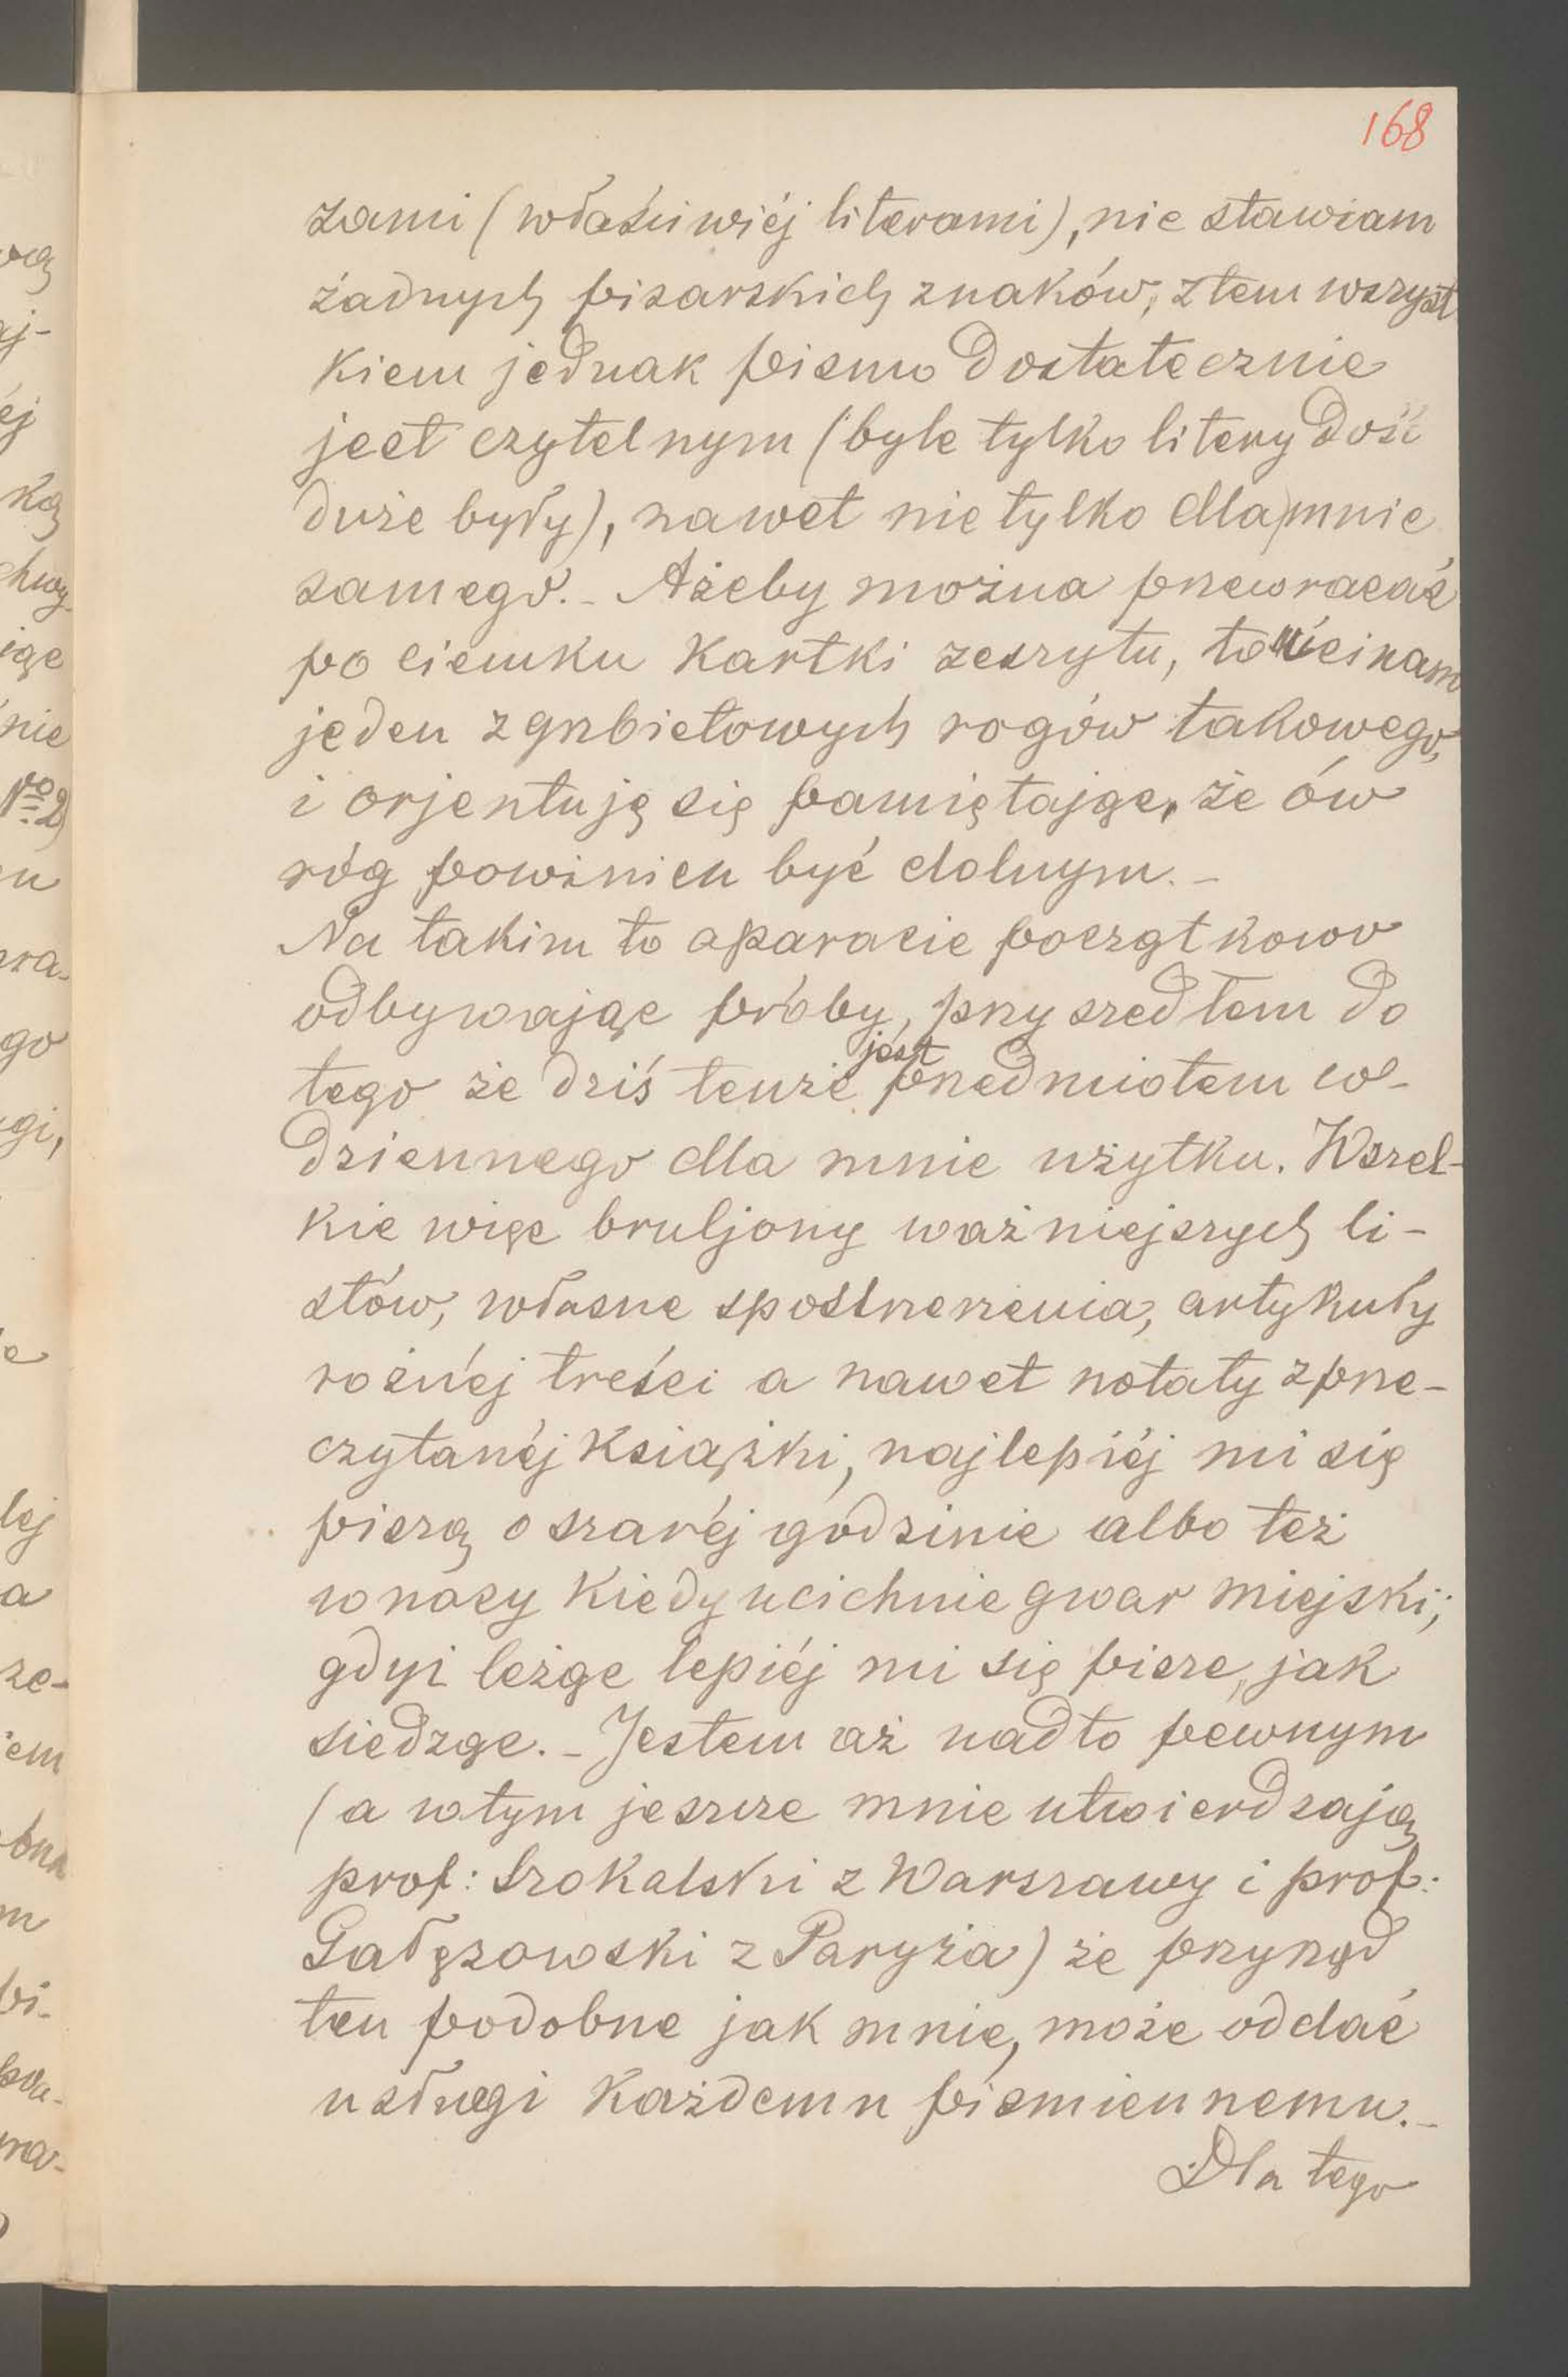 168
zami (właściwiéj literami), nie stawiam
żadnych pisarskich znaków, z tem wszyst
kiem jednak pismo dostatecznie
jest czytelnym (byle tylko litery dość
duże były), nawet nie tylko dla mnie
samego. - Ażeby można przewracać
po ciemku kartki zeszytu, to ucinam
jeden z grzbietowych rogów takowego,
i orjentuję się pamiętając, że ów
róg powinien być dolnym. -
Na takim to aparacie początkowo
odbywając próby, przyszedłem do
tego że dziś tenże jest przedmiotem co-
dziennego dla mnie użytku. Wszel-
kie więc bruljony ważniejszych li-
stów, własne spostrzeżenia, artykuły
rożnéj treści a nawet notaty z prze-
czytanéj książki, najlepiéj mi się
piszą o szaréj godzinie albo też
w nocy kiedy ucichnie gwar miejski;
gdyż leżąc lepiéj mi się pisze, jak
siedząc. - Jestem aż nadto pewnym
(a w tym jeszcze mnie utwierdzają
prof: Szokalski z Warszawy i prof:
Gałęzowski z Paryża) że przyrząd
ten podobne jak mnie, może oddać
usługi każdemu piśmiennemu. -
Dla tego